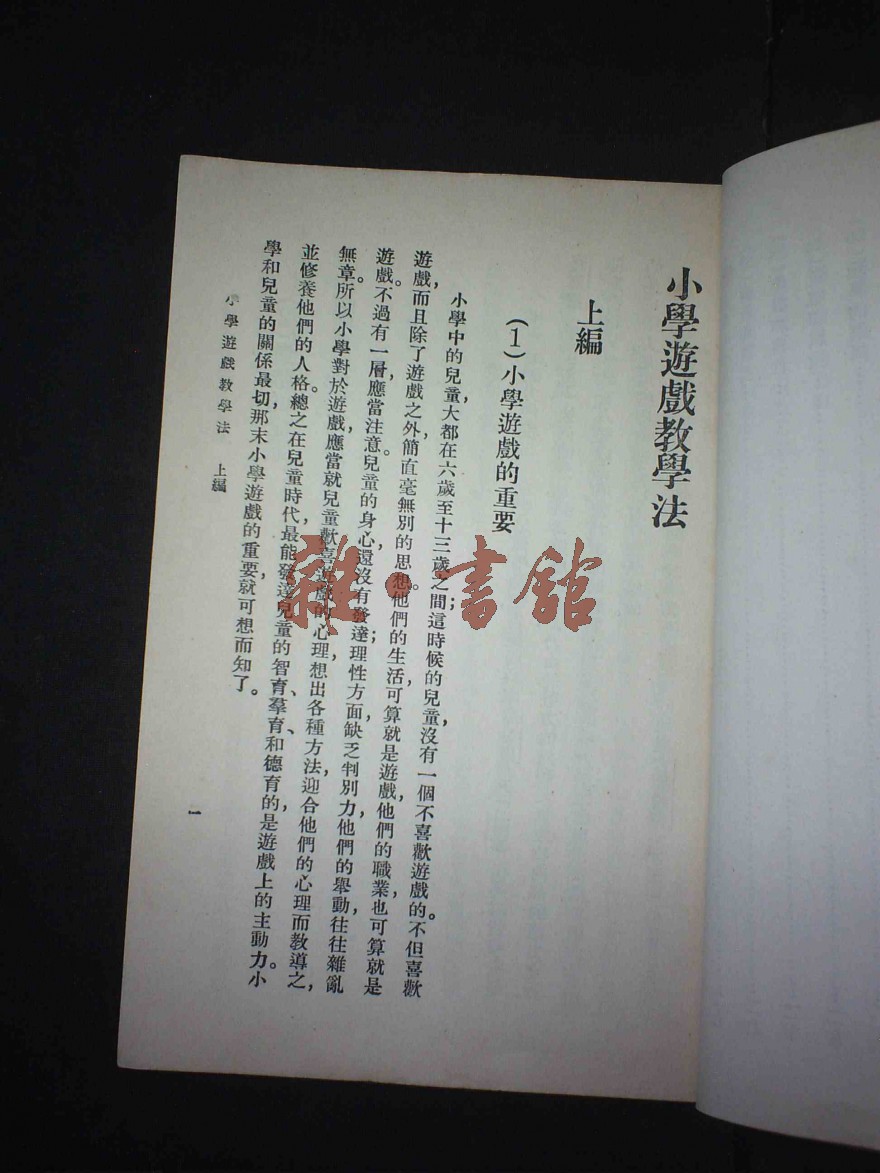 小學遊戲教學法
上編
（1）小學遊戲的重要
小學中的兒童，大都在六歲至十三歲之間；這時候的兒童，沒有一個不喜歡遊戲的。不但喜歡
遊戲，而且除了遊戲之外，簡直毫無別的思想。他們的生活，可算就是遊戲，他們的職業，也可算就是
遊戲。不過有一層，應當注意。兒童的身心，還沒有發達；理性方面，缺乏判別力，他們的舉動，往往雜亂
無章。所以小學對於遊戲，應當就兒童歡喜遊戲的心理，想出各種方法，迎合他們的心理而教導之，
並修養他們的人格。總之在兒童時代，最能發達兒童的智育、羣育、和德育的，是遊戲上的主動力。小
學和兒童的關係最切，那末小學遊戲的重要，就可想而知了。
小學遊戲教學法 上編
一
雜·書館